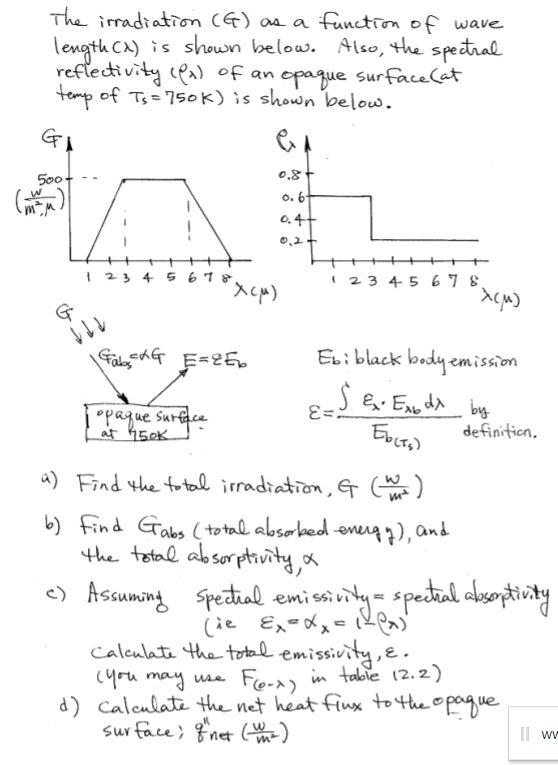 The irradiation (G) as a function of wave
length (λ) is shown below. Also, the spectral
reflectivity (ρλ) of an opaque surface (at
temp of Ts = 750K) is shown below.
G
500
(w/m²,μ)
1 2 3 4 5 6 7 8
λ(μ)
ρλ
0.8
0.6
0.4
0.2
1 2 3 4 5 6 7 8
λ(μ)
G
Gabs=αG E=εEb
opaque surface
at 750K
Eb: black body emission
ε = ∫ ελ · Eλb dλ / Eb(Ts) by
definition.
a) Find the total irradiation, G (w/m²)
b) find Gabs (total absorbed energy), and
the total absorptivity, α
c) Assuming spectral emissivity = spectral absorptivity
(ie ελ = αλ = 1-ρλ)
calculate the total emissivity, ε.
(you may use F(0-λ) in table 12.2)
d) calculate the net heat flux to the opaque
surface; q"net (w/m²)
|| ww